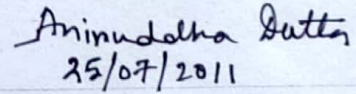 Aniruddha Dutta
25/07/2011